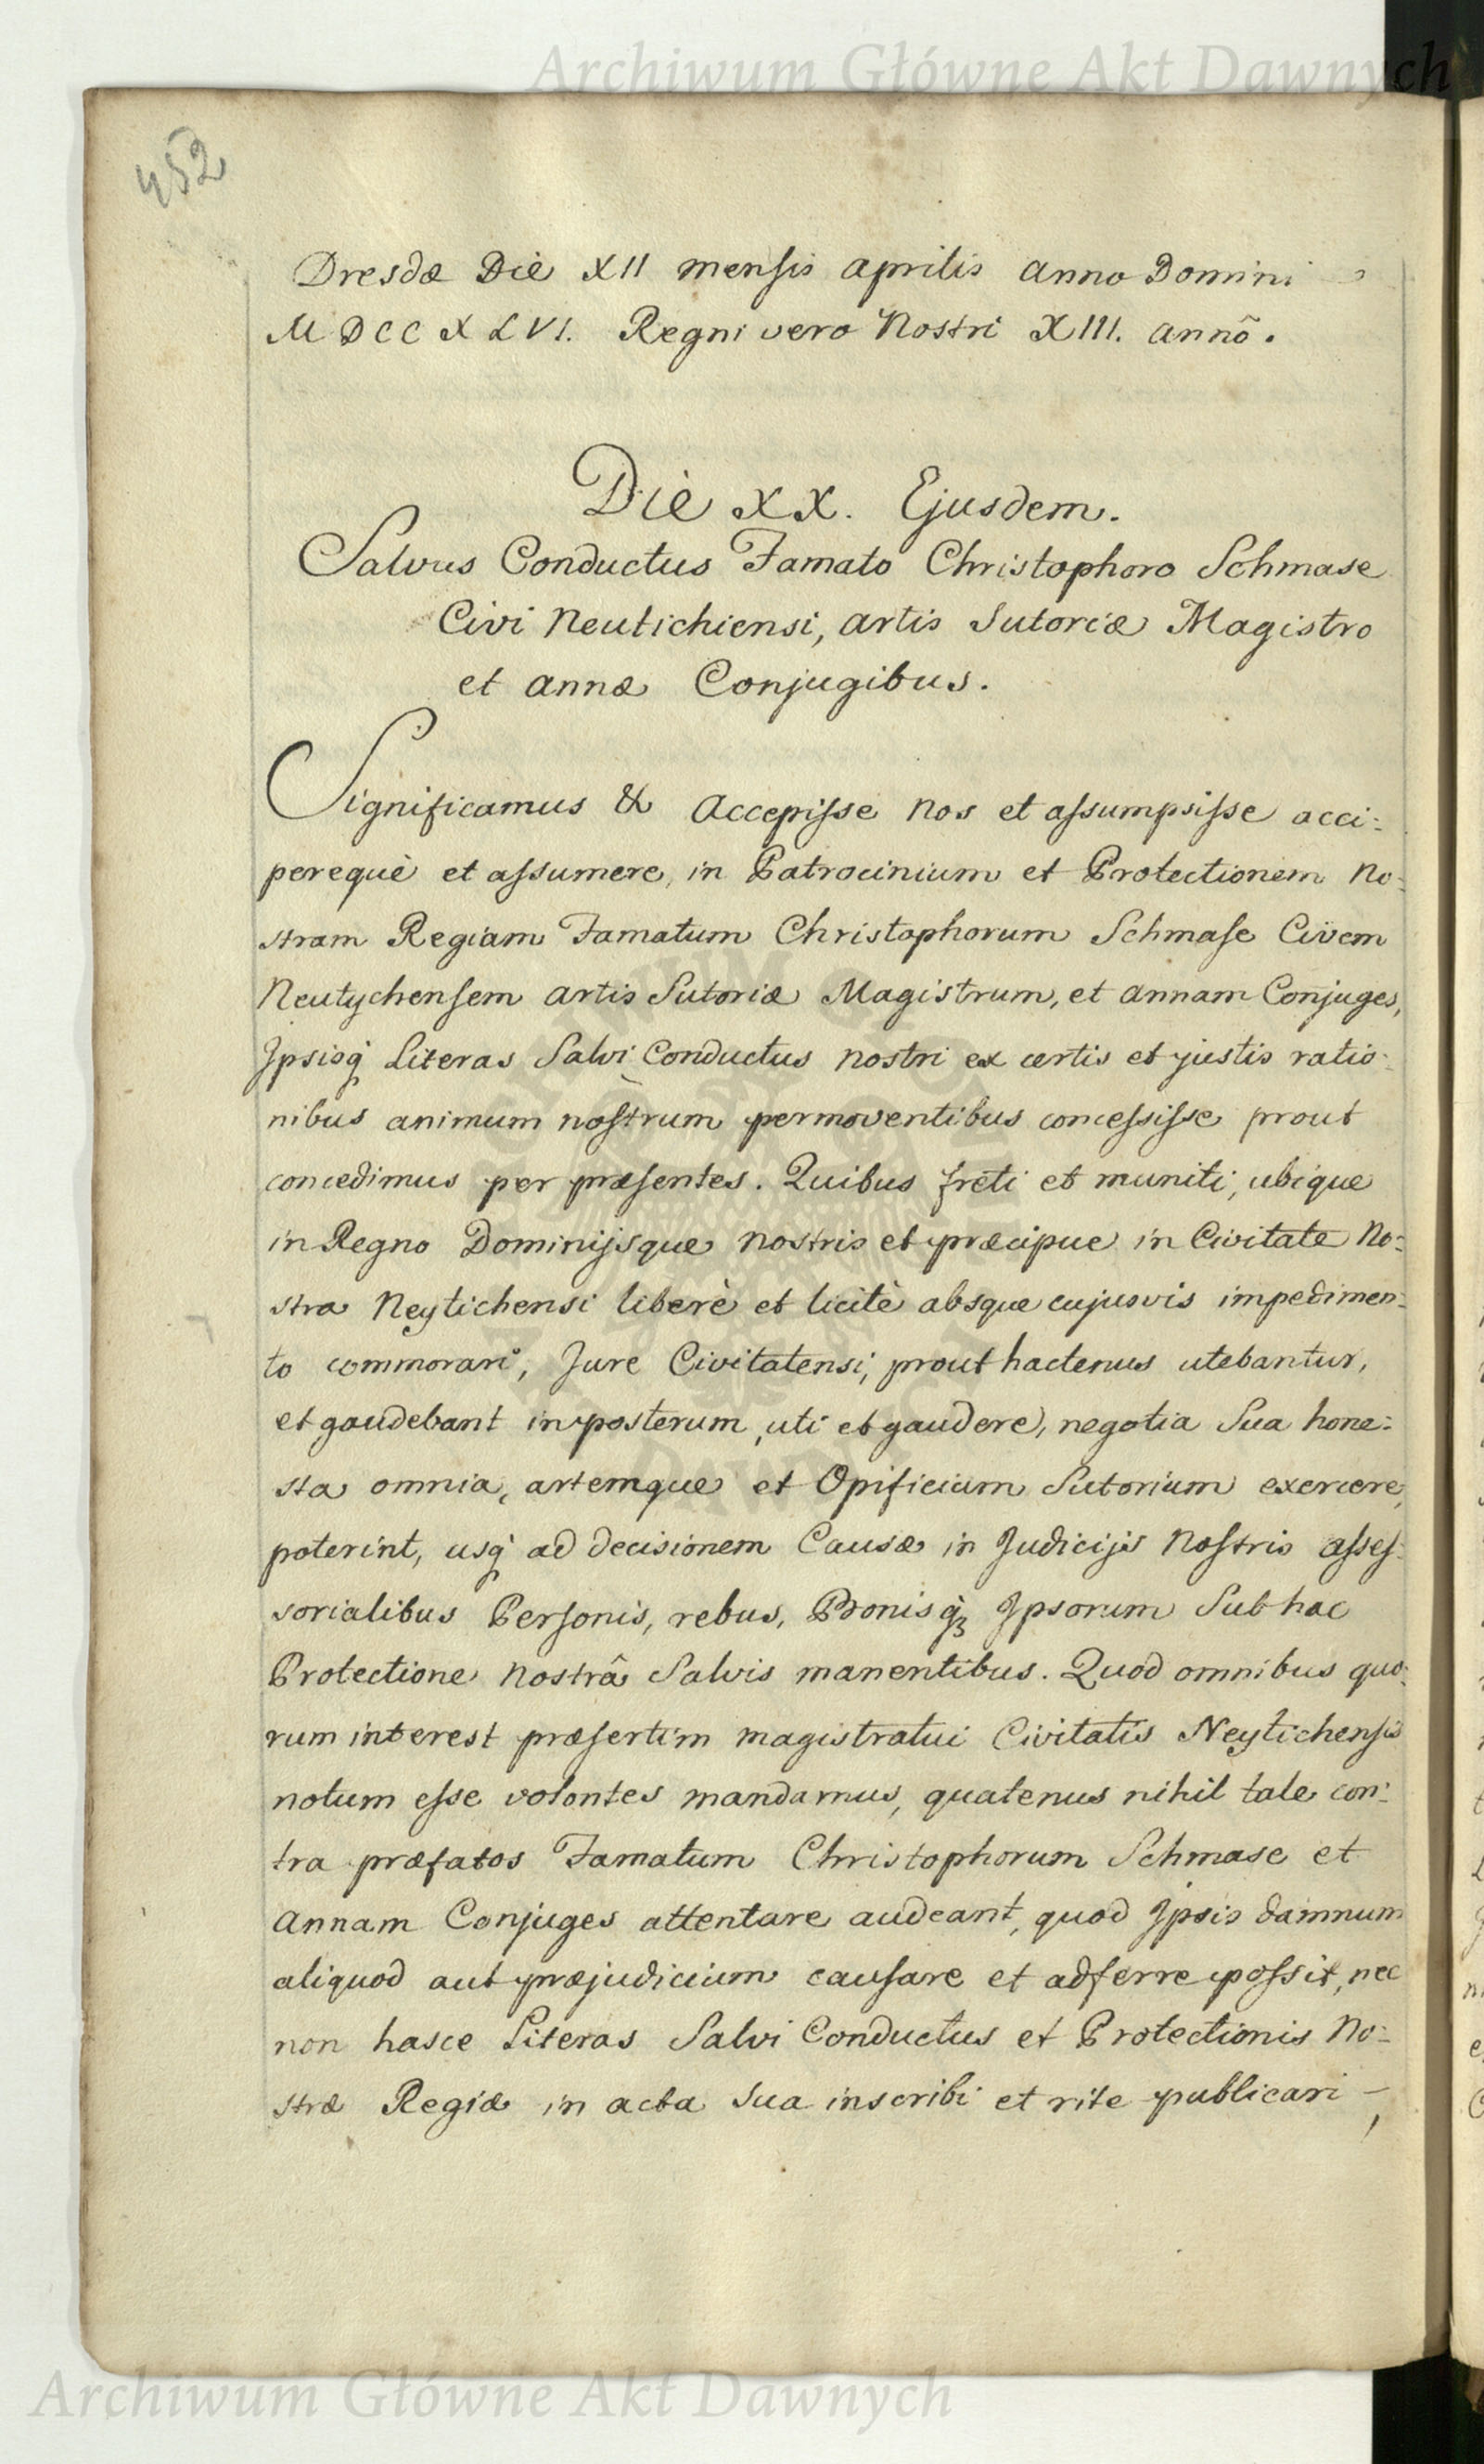 Archiwum Główne Akt Dawnych
452
Dresdæ Die XII mensis aprilis anno Domini
MDCCXLVI. Regni vero Nostri XIII. annô.
Diè XX. Ejusdem.
Salvus Conductus Famato Christophoro Schmase
Civi Neutichiensi, artis Sutoriæ Magistro
et annæ Conjugibus.
Significamus & Accepisse Nos et assumpsisse acci:
perequè et assumere, in Patrocinium et Protectionem No:
stram Regiam Famatum Christophorum Schmase Civem
Neutychensem artis Sutoriæ Magistrum, et annam Conjuges,
Ipsisq; Literas Salvi Conductus nostri ex certis et justis ratio:
nibus animum nostrum permoventibus concessisse prout
concedimus per præsentes. Quibus freti et muniti, ubique
in Regno Dominijsque nostris et præcipue in Civitate No:
stra Neytichensi liberè et licitè absque cujusvis impedimen:
to commorari, Jure Civitatensi, prout hactenus utebantur,
et gaudebant inposterum, uti et gaudere, negotia Sua hone:
sta omnia, artemque et Opificium Sutorium exercere,
poterint, usq; ad decisionem Causæ in Judicijs Nostris asses:
sorialibus Personis, rebus, Bonisq; Ipsorum Sub hac
Protectione Nostrâ Salvis manentibus. Quod omnibus quo:
rum interest præsertim magistratui Civitatis Neytichensis
notum esse volentes mandamus, quatenus nihil tale con:
tra præfatos Famatum Christophorum Schmase et
Annam Conjuges attentare audeant, quod Ipsis damnum
aliquod aut præjudicium causare et adferre possit, nec
non hasce Literas Salvi Conductus et Protectionis No:
stræ Regiæ in acta Sua inscribi et rite publicari –,
Archiwum Główne Akt Dawnych